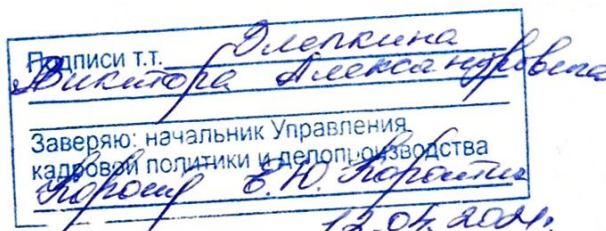 Подписи т.т. Олепкина
Виктора Александровича
Заверяю: начальник Управления
кадровой политики и делопроизводства
Е.Ю.
12.04.2024г.